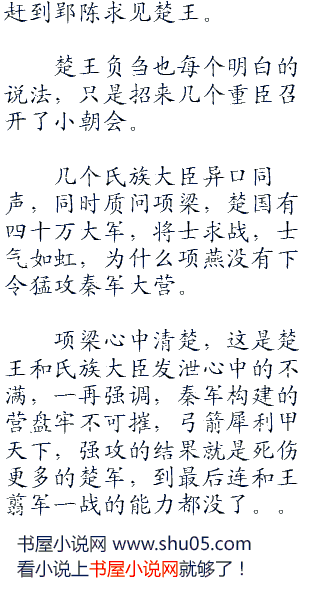 赶到郢陈求见楚王。
楚王负刍也每个明白的
说法，只是招来几个重臣召
开了小朝会。
几个氏族大臣异口同
声，同时质问项梁，楚国有
四十万大军，将士求战，士
气如虹，为什么项燕没有下
令猛攻秦军大营。
项梁心中清楚，这是楚
王和氏族大臣发泄心中的不
满，一再强调，秦军构建的
营盘牢不可摧，弓箭犀利甲
天下，强攻的结果就是死伤
更多的楚军，到最后连和王
翦军一战的能力都没了。。
书屋小说网 www.shu05.com
看小说上书屋小说网就够了！